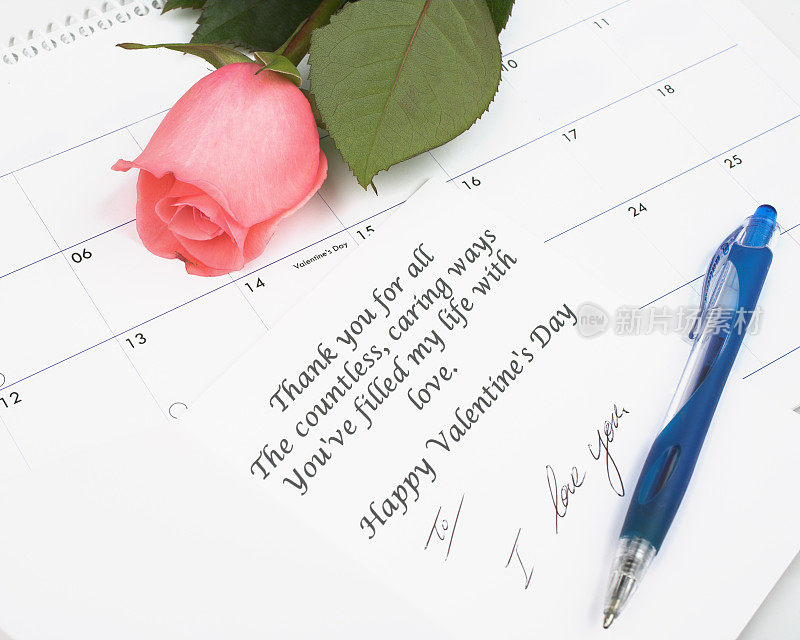 11
10
18
17
25
16
24
15
06
Valentine's Day
14
13
12
Thank you for all
The countless, caring ways
You've filled my life with
love.
Happy Valentine's Day
To
I love you.
new 新片场 素材